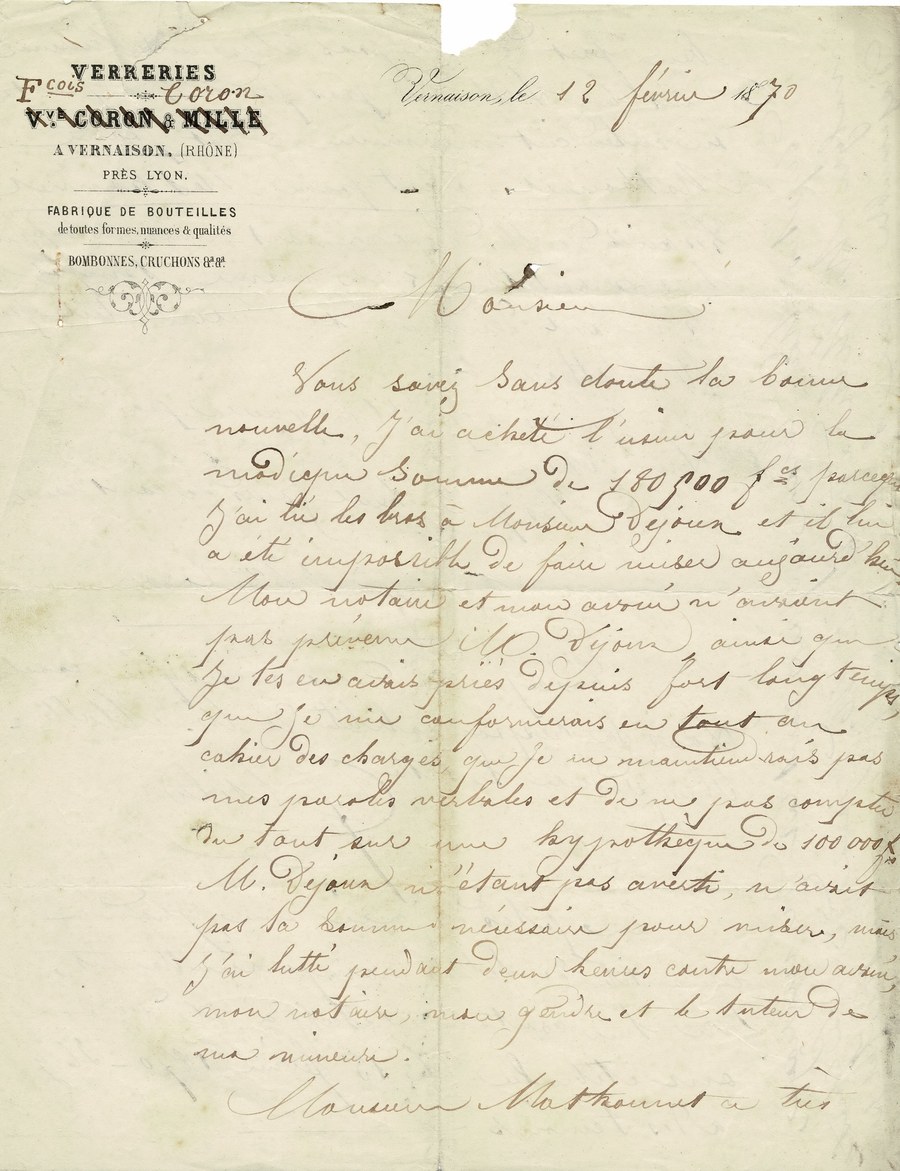 VERRERIES
Fcois Coron
Vve CORON & MILLE
A VERNAISON, (RHÔNE)
PRÈS LYON.
FABRIQUE DE BOUTEILLES
de toutes formes, nuances & qualités
BOMBONNES, CRUCHONS &a. &a.
Vernaison, le 12 février 1870
Monsieur
Vous savez sans doute la bonne
nouvelle, J'ai acheté l'usine pour la
modique somme de 180500 fcs, parceque
J'ai lié les bras à Monsieur Déjoux et il lui
a été impossible de faire miser aujourd'hui
Mon notaire et mon avoué n'avaient
pas prévenu M. Déjoux, ainsi que
Je les en avais priés depuis fort longtemps,
que Je me conformerais en tout au
cahier des charges, que Je ne maintiendrais pas
mes paroles verbales et de ne pas compter
du tout sur une hypothèque de 100 000 f
M. Déjoux n'étant pas averti, n'avait
pas la somme nécessaire pour miser, mais
J'ai lutté pendant deux heures contre mon avoué,
mon notaire, mon gendre et le tuteur de
ma mineure.
Monsieur a très